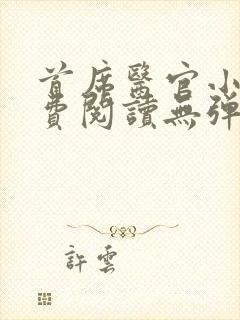 首席醫官小
費閱讀無彈
許雲